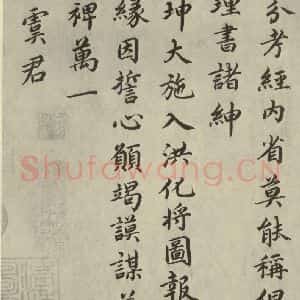 分考經内省莫能稱
理書諸紳
坤大施入洪化将圖報
緣因誓心願竭謨謀
裨萬一
虞君
Shufawang.CN